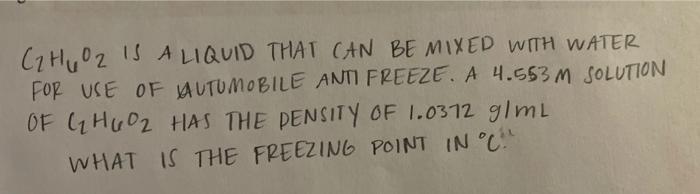 C2H6O2 IS A LIQUID THAT CAN BE MIXED WITH WATER
FOR USE OF AUTUMOBILE ANTI FREEZE. A 4.553 M SOLUTION
OF C2H6O2 HAS THE DENSITY OF 1.0372 g/mL
WHAT IS THE FREEZING POINT IN °C?